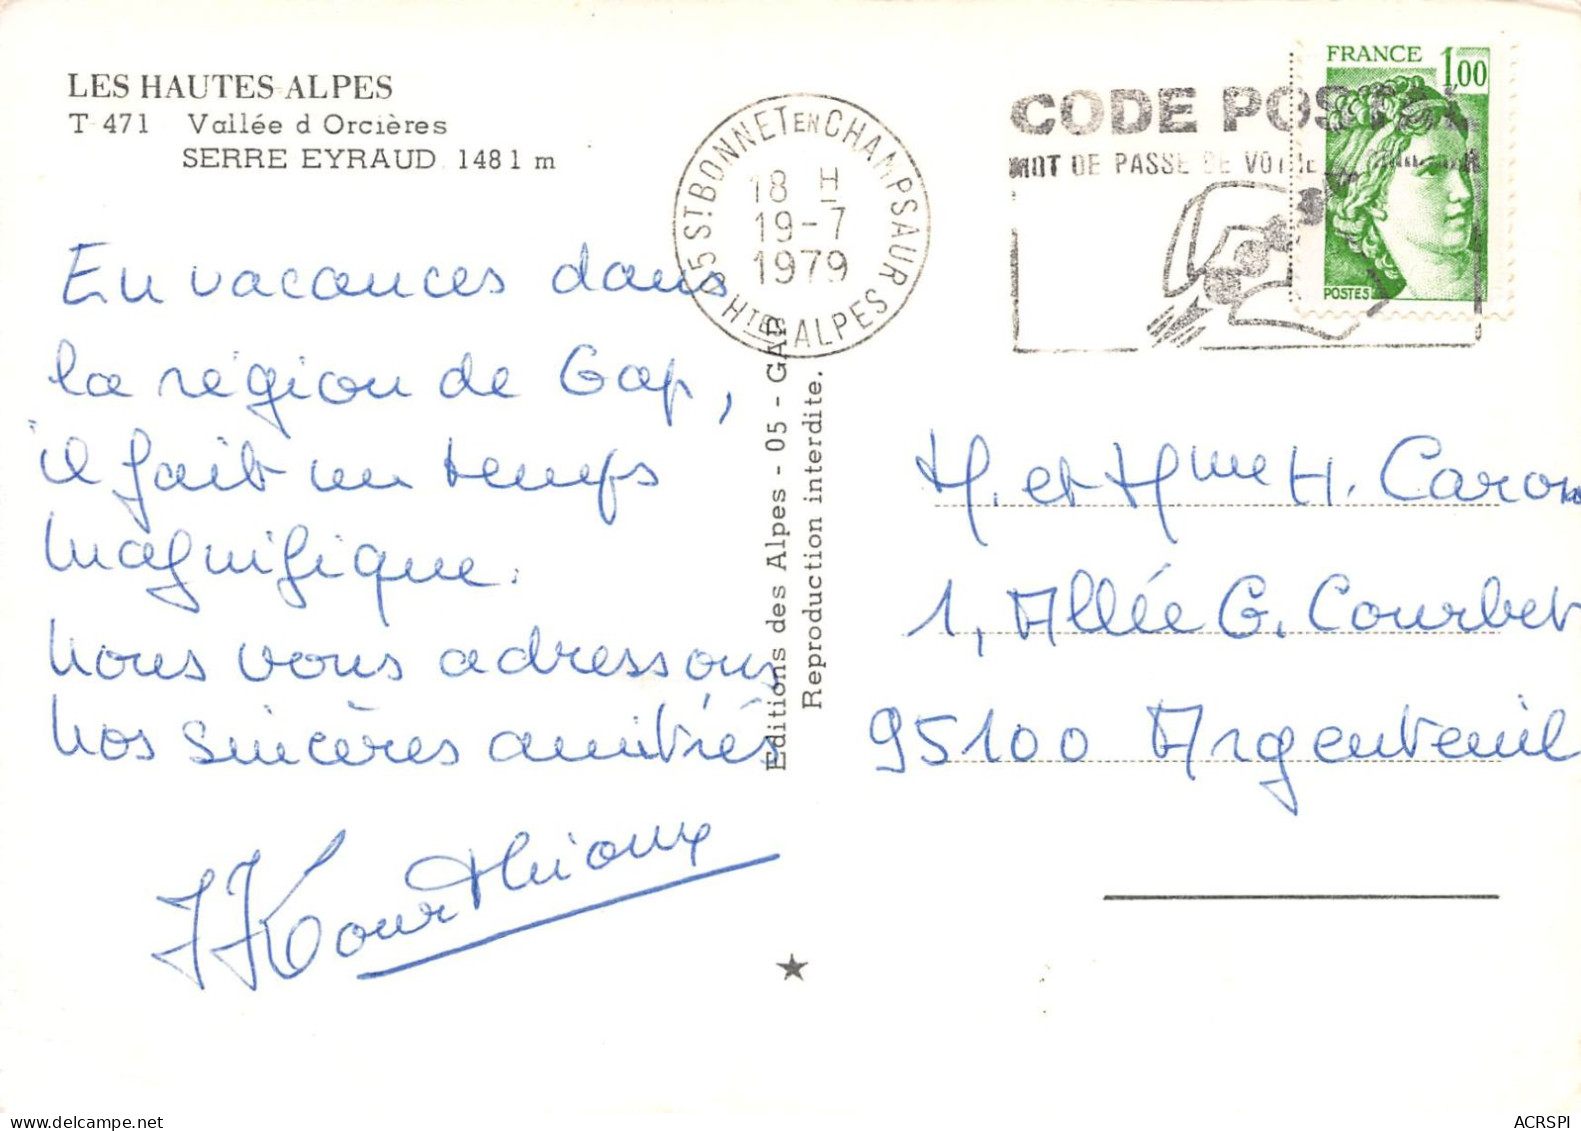 LES HAUTES-ALPES
T-471 Vallée d Orcières
SERRE EYRAUD. 1481 m
En vacances dans
la région de Gap,
il fait un temps
magnifique.
Nous vous adressons
nos sincères amitiés
05 ST BONNET EN CHAMPSAUR
18 H
19-7
1979
HTES ALPES
CODE POSTAL
MOT DE PASSE DE VOTRE
FRANCE 1,00
POSTES
Editions des Alpes - 05 - GAP
Reproduction interdite.
M. et Mme H. Caron
1, Allée G. Courbet
95100 Argenteuil
ACRSPI